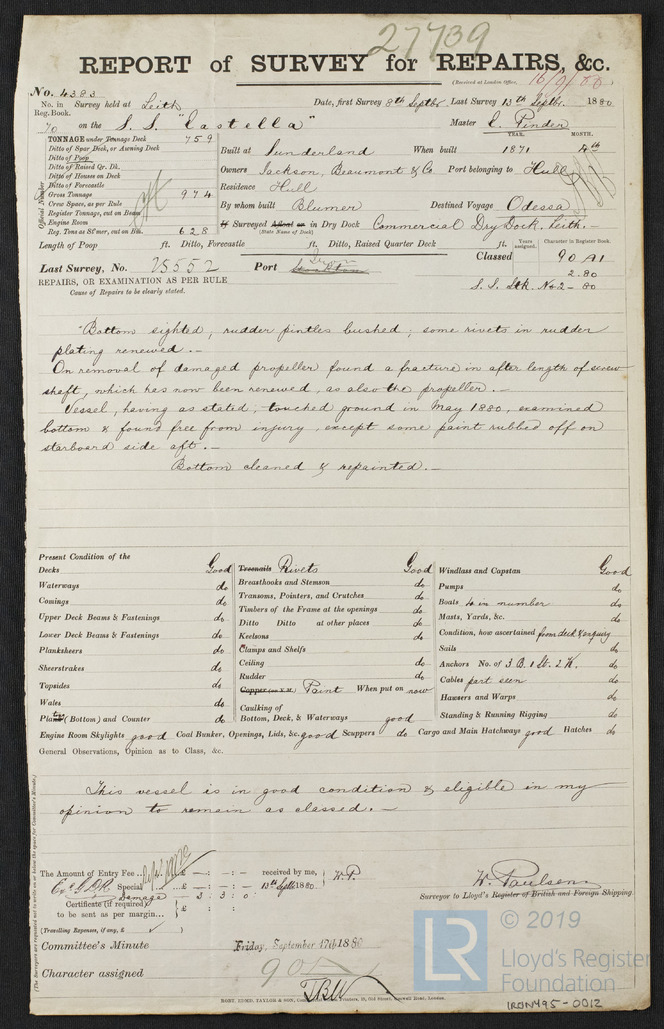 27739
REPORT of SURVEY for REPAIRS, &c.
(Received at London Office, 16/9/80
No. 4383
No. in Survey held at Leith Date, first Survey 8th Septbr Last Survey 13th Septbr. 1880
Reg. Book.
70 on the S.S. "Castella" Master C. Pinder
TONNAGE under Tonnage Deck 759
Ditto of Spar Deck, or Awning Deck
Ditto of Poop
Ditto of Raised Qr. Dk.
Ditto of Houses on Deck
Ditto of Forecastle
Gross Tonnage 974
Crew Space, as per Rule
Register Tonnage, cut on Beam
Engine Room
Reg. Tons as St'mer, cut on Bm. 628
Official Number
YEAR. MONTH.
Built at Sunderland When built 1871 4th
Owners Jackson, Beaumont & Co Port belonging to Hull
Residence Hull
By whom built Blumer Destined Voyage Odessa
If Surveyed Afloat or in Dry Dock Commercial Dry Dock, Leith.-
(State Name of Dock)
Length of Poop ft. Ditto, Forecastle ft. Ditto, Raised Quarter Deck ft.
Years assigned. Character in Register Book.
Classed 90 A1
2.80
S.S. Stk. No. 2 - 80
Last Survey, No. 25552 Port
REPAIRS, OR EXAMINATION AS PER RULE
Cause of Repairs to be clearly stated.
Bottom sighted; rudder pintles bushed; some rivets in rudder
plating renewed.-
On removal of damaged propeller found a fracture in after length of screw
shaft, which has now been renewed, as also the propeller.-
Vessel, having as stated, touched ground in May 1880, examined
bottom & found free from injury, except some paint rubbed off on
starboard side aft.-
Bottom cleaned & repainted.-
Present Condition of the
Decks Good
Waterways do
Comings do
Upper Deck Beams & Fastenings do
Lower Deck Beams & Fastenings do
Planksheers do
Sheerstrakes do
Topsides do
Wales do
Plating (Bottom) and Counter do
Treenails Rivets Good
Breasthooks and Stemson do
Transoms, Pointers, and Crutches do
Timbers of the Frame at the openings do
Ditto Ditto at other places do
Keelsons do
Clamps and Shelfs
Ceiling do
Rudder do
Copper (or Y.M.) Paint When put on now
Caulking of
Bottom, Deck, & Waterways good
Windlass and Capstan Good
Pumps do
Boats 4 in number do
Masts, Yards, &c. do
Condition, how ascertained from deck & enquiry
Sails do
Anchors No. of 3 B. 1 St. 2 K. do
Cables part seen do
Hawsers and Warps do
Standing & Running Rigging do
Engine Room Skylights good Coal Bunker, Openings, Lids, &c. good Scuppers do Cargo and Main Hatchways good Hatches do
General Observations, Opinion as to Class, &c.
This vessel is in good condition & eligible in my
opinion to remain as classed.-
The Amount of Entry Fee £ - : - : - received by me, W.P.
Special £ - : - : - 13th Septbr 1880
Damage 3 : 3 : 0
Certificate (if required)
to be sent as per margin £ : :
(Travelling Expenses, if any, £
W. Paulsen
Surveyor to Lloyd's Register of British and Foreign Shipping.
Committee's Minute Friday, September 17th 1880
Character assigned 90 A
© 2019
LR
Lloyd's Register
Foundation
IRON495-0012